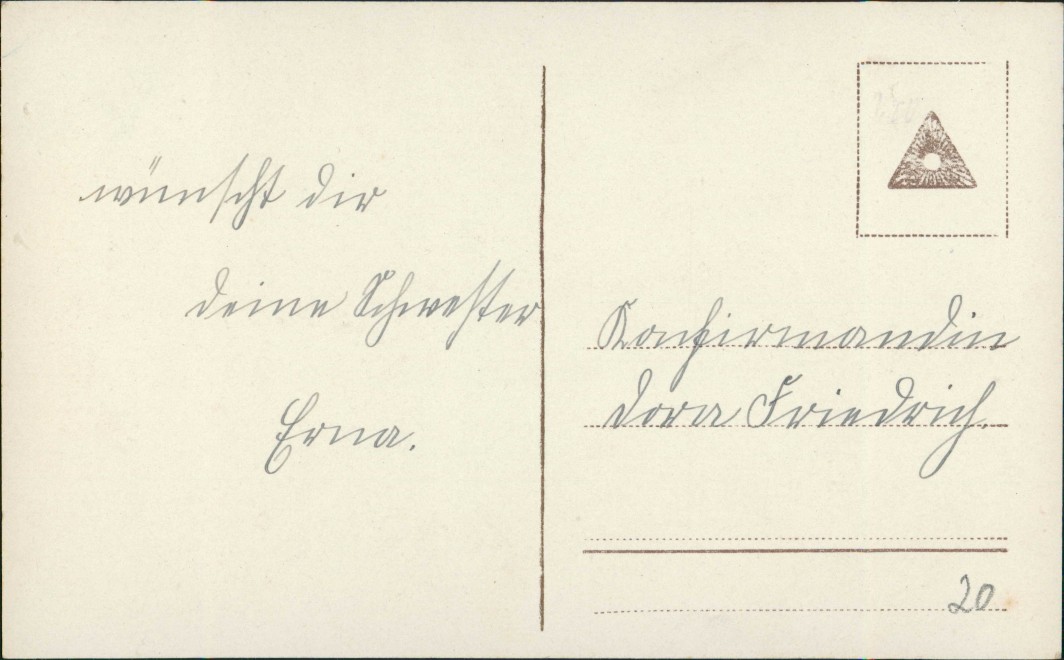 wünscht dir
deine Schwester
Erna.
Konfirmandin
Dora Friedrich.
20